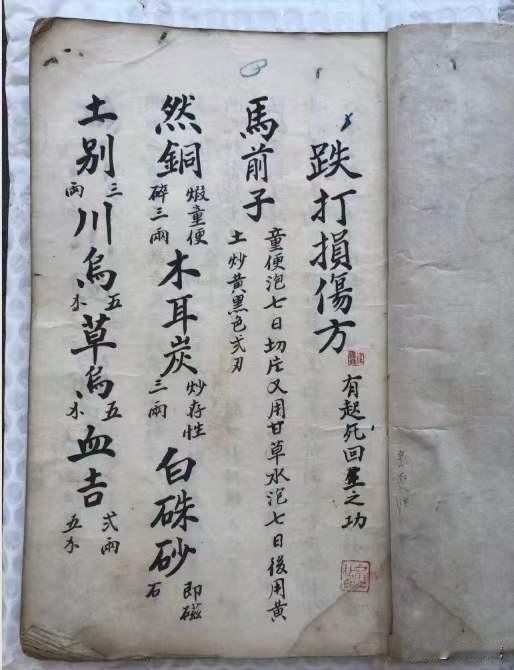 跌打損傷方 有起死回生之功
馬前子 童便泡七日切片又用甘草水泡七日後用黃
土炒黃黑色弍刃
然銅 煅童便
碎三兩 木耳炭 炒存性
三兩 白硃砂 即磁
石
土别 三
兩 川烏 五
錢 草烏 五
錢 血吉 弍兩
五錢